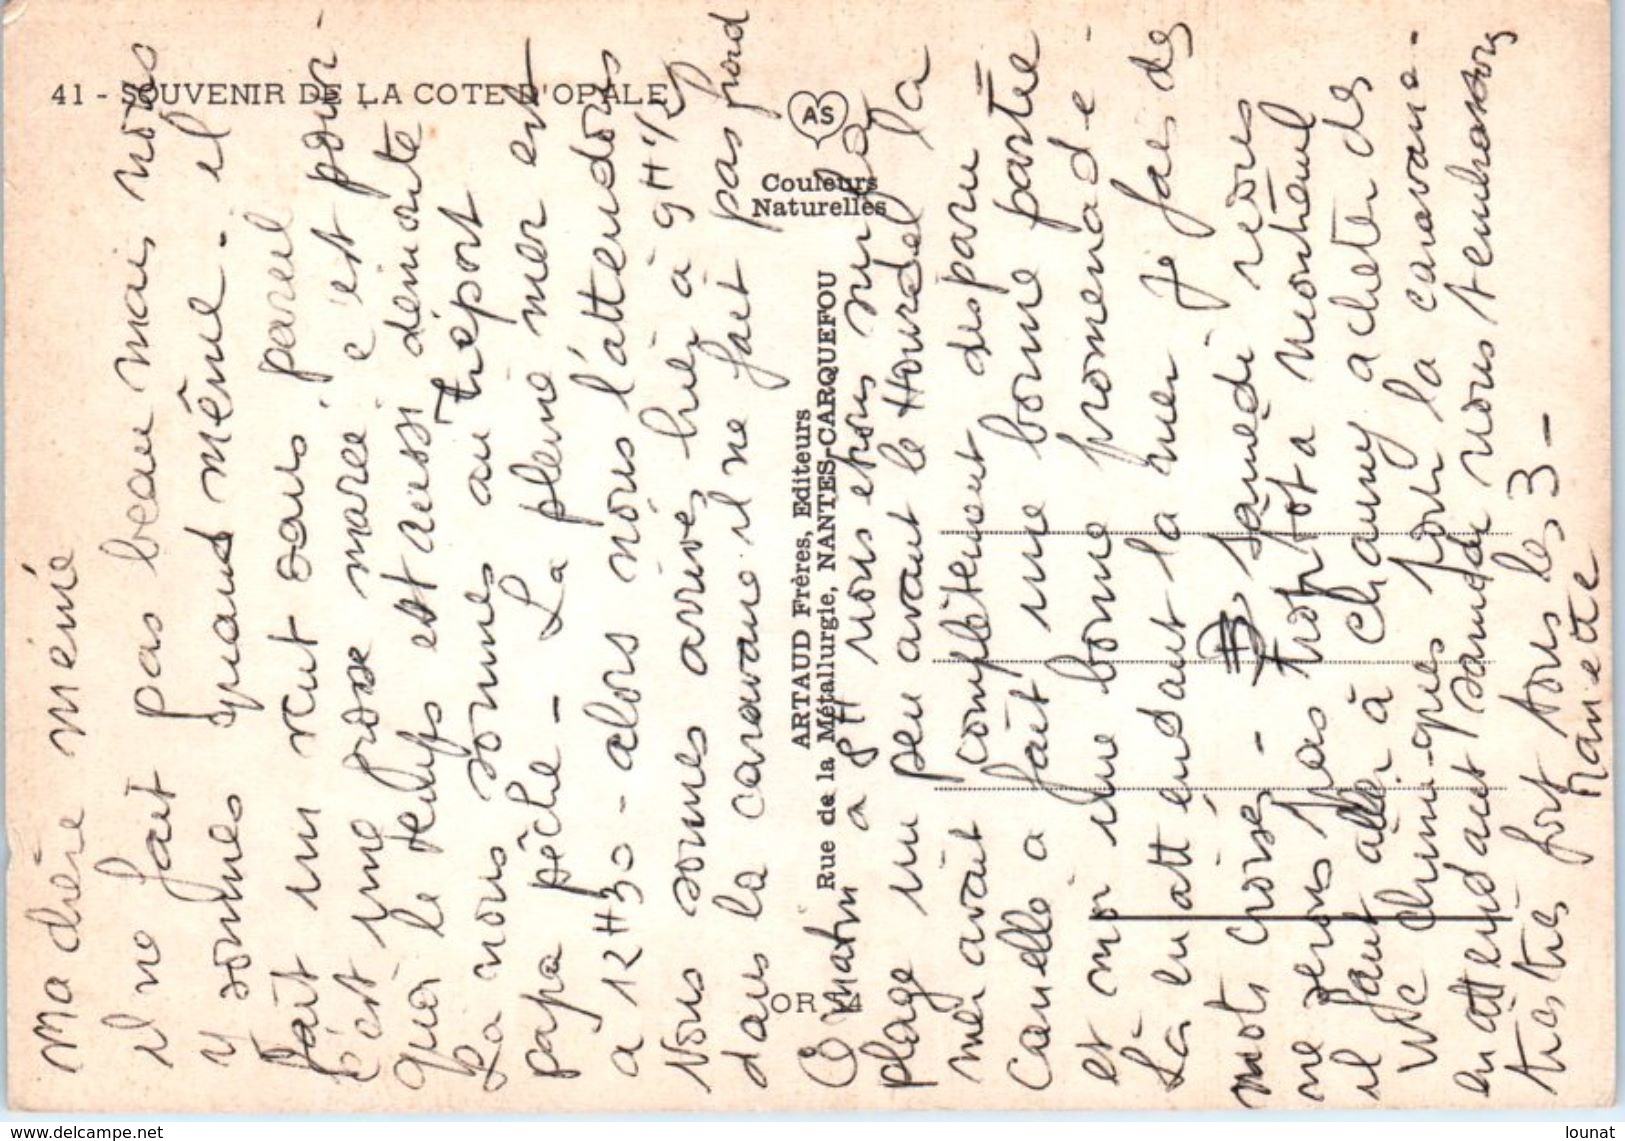 41 - SOUVENIR DE LA COTE D'OPALE
AS
Couleurs
Naturelles
ARTAUD Frères, Editeurs
Rue de la Métallurgie, NANTES-CARQUEFOU
OR 14
Ma chère mémé
il ne fait pas beau mais nous
y sommes quand même. il
fait un vent sans pareil
c'est une grosse marée c'est pour-
quoi le temps est aussi démonté
La nous sommes au Tréport
papa pêche - La pleine mer est
a 12H30 - alors nous l'attendons
Nous sommes arrivés hier à 9H 1/2
dans la caravane il ne fait pas froid
Ce matin a 8H nous etions sur la
plage un peu avant le Hourdel la
mer avait complètement disparu
Canelle a fait une bonne partie
et moi une bonne promenade -
Là en attendant la mer je fais des
mots croisés - samedi nous
ne serons pas trop tot a Montreuil
il faut aller à Chauny acheter des
WC chimiques pour la caravane -
en attendant samedi nous t'embrassons
très très fort tous les 3 -
Mariette
www.delcampe.net
lounat